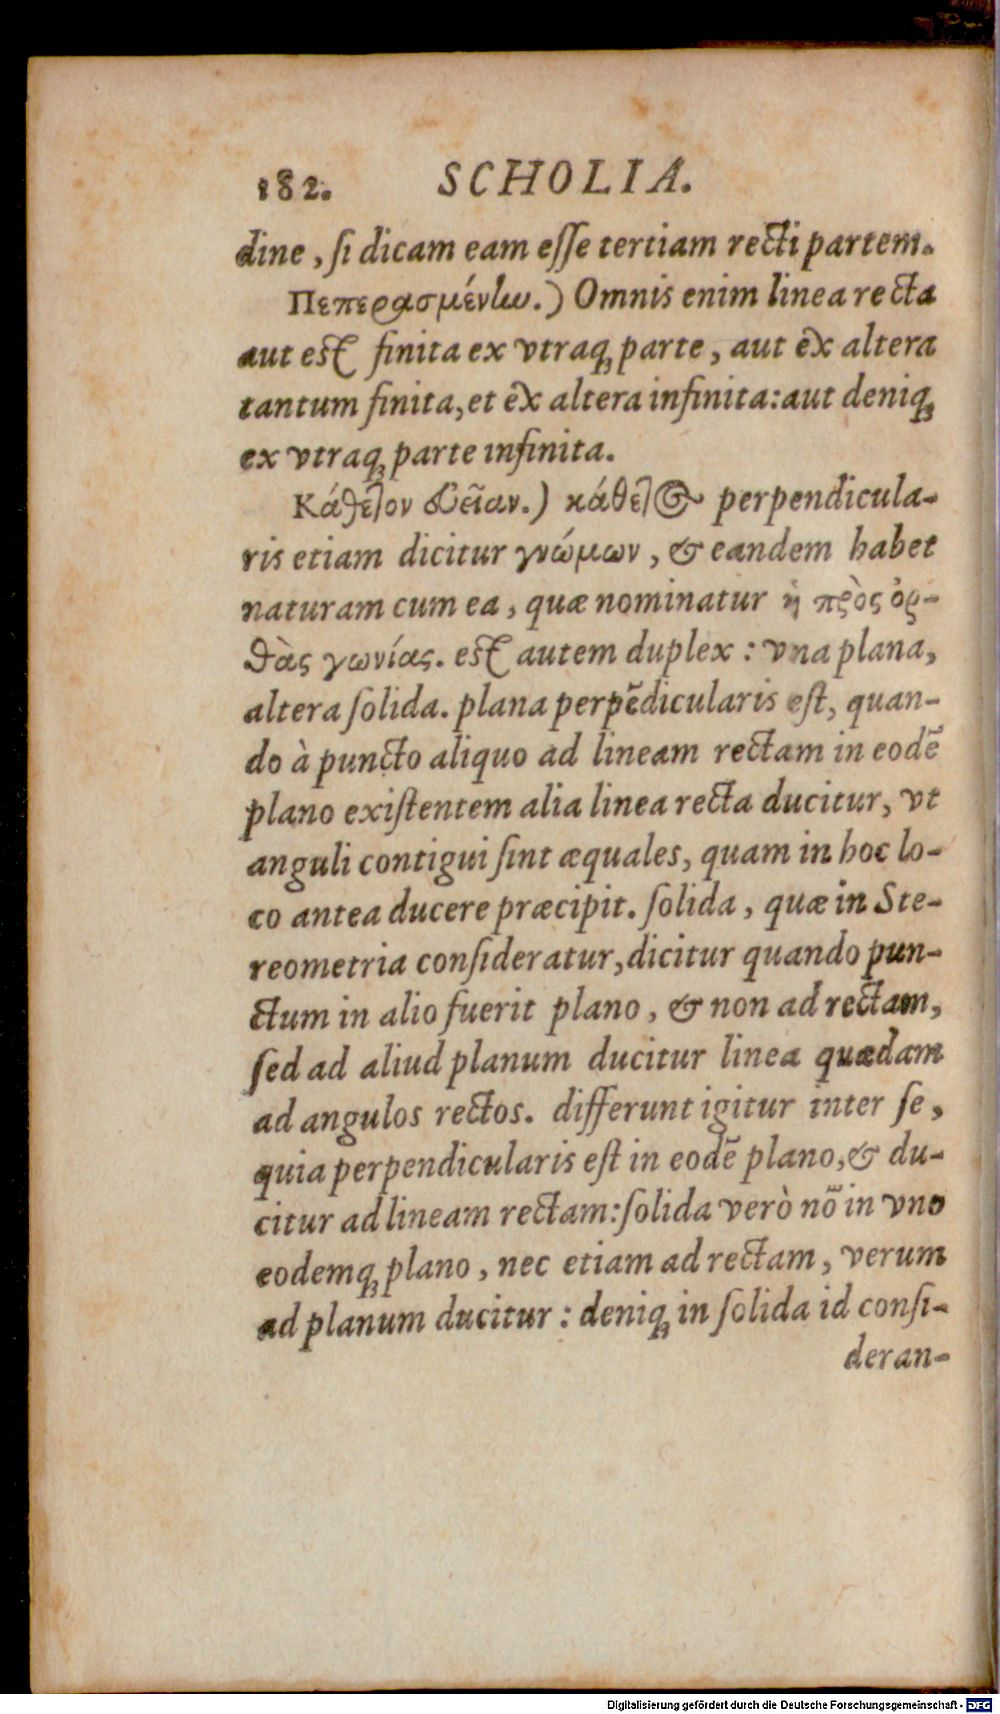 182. SCHOLIA.
dine, ſi dicam eam eſſe tertiam recti partem.
Πεπερασμένην.) Omnis enim linea recta
aut eſt finita ex vtraq; parte, aut ex altera
tantum finita, et ex altera infinita: aut deniq;
ex vtraq; parte infinita.
Κάθετον εὐθεῖαν.) κάθετος perpendicula-
ris etiam dicitur γνώμων, & eandem habet
naturam cum ea, quæ nominatur ἡ πρὸς ὀρ-
θὰς γωνίας. eſt autem duplex: vna plana,
altera ſolida. plana perpēdicularis eſt, quan-
do à puncto aliquo ad lineam rectam in eodē
plano exiſtentem alia linea recta ducitur, vt
anguli contigui ſint æquales, quam in hoc lo-
co antea ducere præcipit. ſolida, quæ in Ste-
reometria conſideratur, dicitur quando pun-
ctum in alio fuerit plano, & non ad rectam,
ſed ad aliud planum ducitur linea quædam
ad angulos rectos. differunt igitur inter ſe,
quia perpendicularis eſt in eodē plano, & du-
citur ad lineam rectam: ſolida verò nō in vno
eodemq; plano, nec etiam ad rectam, verum
ad planum ducitur: deniq; in ſolida id conſi-
deran-
Digitalisierung gefördert durch die Deutsche Forschungsgemeinschaft - DFG